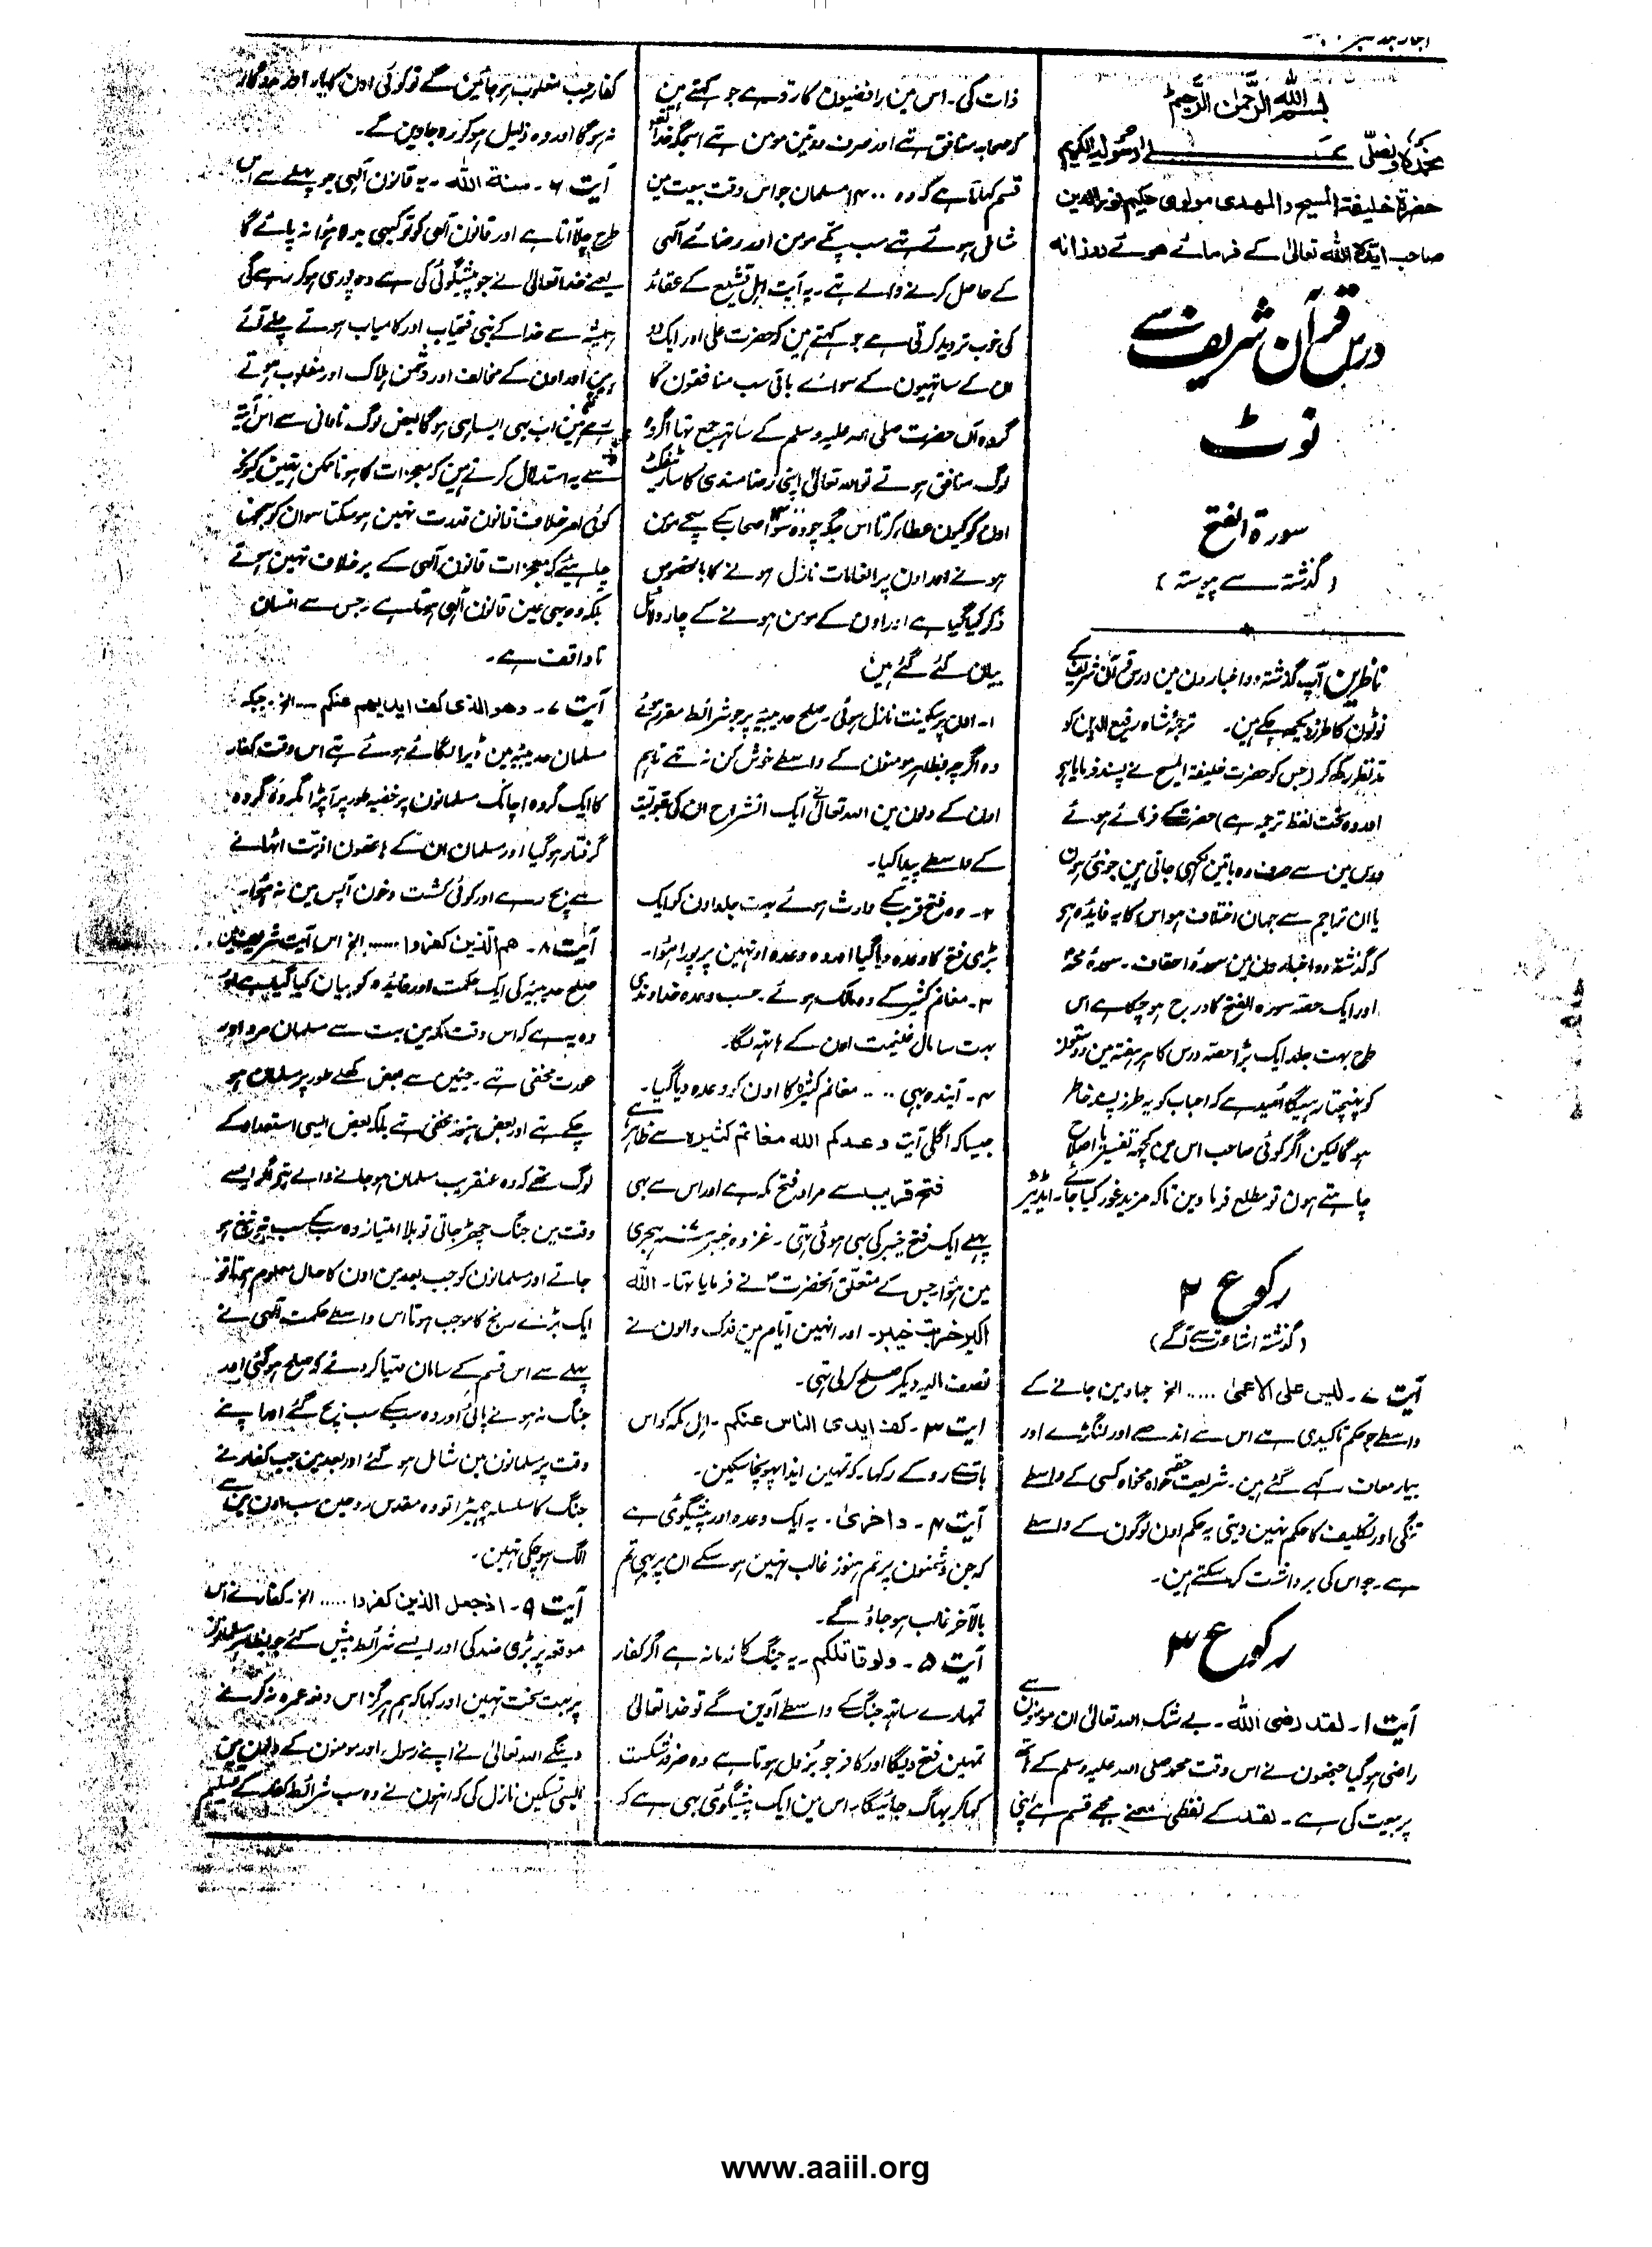 بسم الله الرحمن الرحيم
نحمده ونصلی علے رسوله الکریم
حضرۃ خلیفۃ المسیح والمهدی مولوی حکیم نور الدین
صاحب ایدہ اللہ تعالیٰ کے فرمائے ہوئے روزانہ
درس قرآن شریف سے
نوٹ
سورۃ الفتح
(گذشتہ سے پیوستہ)
ناظرین آپ گذشتہ دو اخبارون مین درس قرآن شریف کے
نوٹون کا طرز دیکھ چکے ہین۔ ترجمہ شاہ رفیع الدین کو
مدنظر رکھ کر (جس کو حضرت خلیفۃ المسیح نے پسند فرمایا ہو
اور وہ تحت لفظ ترجمہ ہے) حضرت کے فرمائے ہوئے
درس مین سے صرف وہ باتین لکھی جاتی ہین جو نئی ہون
یا ان تراجم سے جہان اختلاف ہو اس کا یہ فایدہ ہو
کہ گذشتہ دو اخبارون مین سورۂ احقاف۔ سورۂ محمد
اور ایک حصہ سورہ الفتح کا درج ہو چکا ہے اس
طرح بہت جلد ایک بڑا حصہ درس کا ہر ہفتہ مین دوستون
کو پہنچتا رہیگا اُمید ہے کہ احباب کو یہ طرز پسند خاطر
ہوگا لیکن اگر کوئی صاحب اس مین کچھ تغیر یا اصلاح
چاہتے ہون تو مطلع فرما دین تاکہ مزید غور کیا جائے۔ ایڈیٹر
رکوع ۲
(گذشتہ اشاعت سے آگے)
آیت ۷۔ لیس علی الاعمیٰ ..... الخ جہاد مین جانے کے
واسطے جو حکم تاکیدی ہے اس سے اندھے اور لنگڑے اور
بیمار معاف کئے گئے ہین۔ شریعت حقہ خواہ مخواہ کسی کے واسطے
تنگی اور تکلیف کا حکم نہین دیتی یہ حکم اون لوگون کے واسطے
ہے۔ جو اس کی برداشت کر سکتے ہین۔
رکوع ۳
آیت ۱۔ لقد رضی اللہ۔ بے شک اللہ تعالیٰ ان مومنون سے
راضی ہو گیا جنھون نے اس وقت محمد صلی اللہ علیہ وسلم کے ہاتھ
پر بیعت کی ہے۔ لقد کے لفظی معنے مجھے قسم ہے اپنی
ذات کی۔ اس مین رافضیون کا رد ہے جو کہتے ہین
کہ صحابہ منافق تھے اور صرف دو تین مومن تھے اسجگہ خدا تعالیٰ
قسم کہاتا ہے کہ وہ ۱۴۰۰ مسلمان جو اس وقت بیعت مین
شامل ہوئے تھے سب پکے مومن اور رضائے الٰہی
کے حاصل کرنے والے تھے۔ یہ آیت اہل تشیع کے عقائد
کی خوب تردید کرتی ہے جو کہتے ہین کہ حضرت علی اور ایک دو
ان کے ساتھیون کے سوائے باقی سب منافقون کا
گروہ آں حضرت صلی اللہ علیہ وسلم کے ساتھ جمع تھا اگر وہ
لوگ منافق ہوتے تو اللہ تعالیٰ اپنی رضامندی کا سارٹیفکٹ
اون کو کیون عطا کرتا اس جگہ چودہ سو اصحاب کے سچے مومن
ہونے اور اون پر انعامات نازل ہونے کا بالخصوص
ذکر کیا گیا ہے اور اون کے مومن ہونے کے چار دلائل
بیان کئے گئے ہین
۱۔ اون پر سکینت نازل ہوئی۔ صلح حدیبیہ پر جو شرائط مقرر ہوئے
وہ اگرچہ بظاہر مومنون کے واسطے خوش کن نہ تھے تاہم
اون کے دلون مین اللہ تعالیٰ نے ایک انشراح ان کی قبولیت
کے واسطے پیدا کیا۔
۲۔ وہ فتح قریب کے وارث ہوئے بہت جلد اون کو ایک
بڑی فتح کا وعدہ دیا گیا اور وہ وعدہ اونہین پر پورا ہوا۔
۳۔ مغانم کثیر کے وہ مالک ہوئے۔ حسب وعدہ خداوندی
بہت سا مال غنیمت اون کے ہاتھ لگا۔
۴۔ آیندہ بھی .... مغانم کثیرہ کا اون کو وعدہ دیا گیا۔
جیسا کہ اگلی آیت وعدکم اللہ مغانم کثیرہ سے ظاہر ہے
فتح قریب سے مراد فتح مکہ ہے اور اس سے بھی
پہلے ایک فتح خیبر کی بھی ہوئی تھی۔ غزوہ خیبر ہجری
مین ہوا جس کے متعلق آنحضرت ؐ نے فرمایا تھا۔ اللہ
اکبر خربت خیبر۔ اور انہین ایام مین فدک والون نے
نصف مال دیکر صلح کر لی تھی۔
آیت ۳۔ کف ایدی الناس عنکم۔ اہل مکہ کو اس
بات سے روکے رکھا۔ کہ تمہین ایذا پہونچا سکین۔
آیت ۴۔ واخریٰ۔ یہ ایک وعدہ اور پیشگوئی ہے
کہ جن دشمنون پر تم ہنوز غالب نہین ہو سکے ان پر بھی تم
بالآخر غالب ہو جاؤ گے۔
آیت ۵۔ ولو قاتلکم۔ یہ جنگ کا زمانہ ہے اگر کفار
تمہارے ساتھ جنگ کے واسطے آوین گے تو خدا تعالیٰ
تمہین فتح دیگا اور کافر جو بزدل ہوتا ہے وہ ضرور شکست
کہا کر بھاگ جائیگا۔ اس مین ایک پیشگوئی بھی ہے کہ
کفار جب مغلوب ہو جائین گے تو کوئی اون کا یار اور مددگار
نہ ہوگا اور وہ ذلیل ہو کر رہ جاوین گے۔
آیت ۶۔ سنۃ اللہ۔ یہ قانون الٰہی جو پہلے سے اس
طرح چلا آتا ہے اور قانون الٰہی کو تو کبھی بدلا ہوا نہ پائے گا
یعنے خدا تعالیٰ نے جو پیشگوئی کی ہے وہ پوری ہو کر رہے گی
ہمیشہ سے خدا کے نبی فتحیاب اور کامیاب ہوتے چلے آئے
ہین اور اون کے مخالف اور دشمن ہلاک اور مغلوب ہوتے
رہے ہین اب بھی ایسا ہی ہوگا بعض لوگ نادانی سے اس آیت
سے یہ استدلال کرتے ہین کہ معجزات کا ہونا ممکن نہین کیونکہ
کوئی امر خلاف قانون قدرت نہین ہو سکتا سو ان کو سمجھنا
چاہیئے کہ معجزات قانون الٰہی کے برخلاف نہین ہوتے
بلکہ وہ بھی عین قانون الٰہی ہوتا ہے۔ جس سے انسان
ناواقف ہے۔
آیت ۷۔ وھو الذی کف ایدیھم عنکم ... الخ۔ جبکہ
مسلمان حدیبیہ مین ڈیرا لگائے ہوئے تھے اس وقت کفار
کا ایک گروہ اچانک مسلمانون پر خفیہ طور پر آ پڑا مگر وہ گروہ
گرفتار ہو گیا اور مسلمان ان کے ہاتھون اذیت اٹھانے
سے بچ رہے اور کوئی کشت و خون آپس مین نہ ہوا۔
آیت ۸۔ ھم الذین کفروا ...... الخ اس آیت شریف مین
صلح حدیبیہ کی ایک حکمت اور فایدہ کو بیان کیا گیا ہے اور
وہ یہ ہے کہ اس وقت مکہ مین بہت سے مسلمان مرد اور
عورت مخفی تھے۔ جنمین سے بعض کھلے طور پر مسلمان ہو
چکے تھے اور بعض ہنوز مخفی تھے بلکہ بعض ایسی استعداد کے
لوگ تھے کہ وہ عنقریب مسلمان ہو جانے والے تھے مگر ایسے
وقت مین جنگ چھڑ جاتی تو بلا امتیاز وہ سب کے سب تہ تیغ ہو
جاتے اور مسلمانون کو جب بعد مین اون کا حال معلوم ہوتا تو
ایک بڑے رنج کا موجب ہوتا اس واسطے حکمت الٰہی نے
پہلے سے اس قسم کے سامان مہیا کر دئے کہ صلح ہو گئی اور
جنگ نہ ہونے پائی اور وہ سب کے سب بچ گئے اور اپنے
وقت پر مسلمانون مین شامل ہو گئے اور بعد مین جب کفار نے
جنگ کا سلسلہ چھیڑا تو وہ مقدس روحین سب اون مین سے
الگ ہو چکی تھین۔
آیت ۹۔ اذ جعل الذین کفروا ..... الخ۔ کفار نے اس
موقعہ پر بڑی ضد کی اور ایسے شرائط پیش کئے جو بظاہر مسلمانون
پر بہت سخت تھین اور کہا کہ ہم ہرگز اس دفعہ عمرہ نہ کرنے
دینگے اللہ تعالیٰ نے اپنے رسول اور مومنون کے دلون مین
ایسی تسکین نازل کی کہ انہون نے وہ سب شرائط کفار کے تسلیم
www.aaiil.org